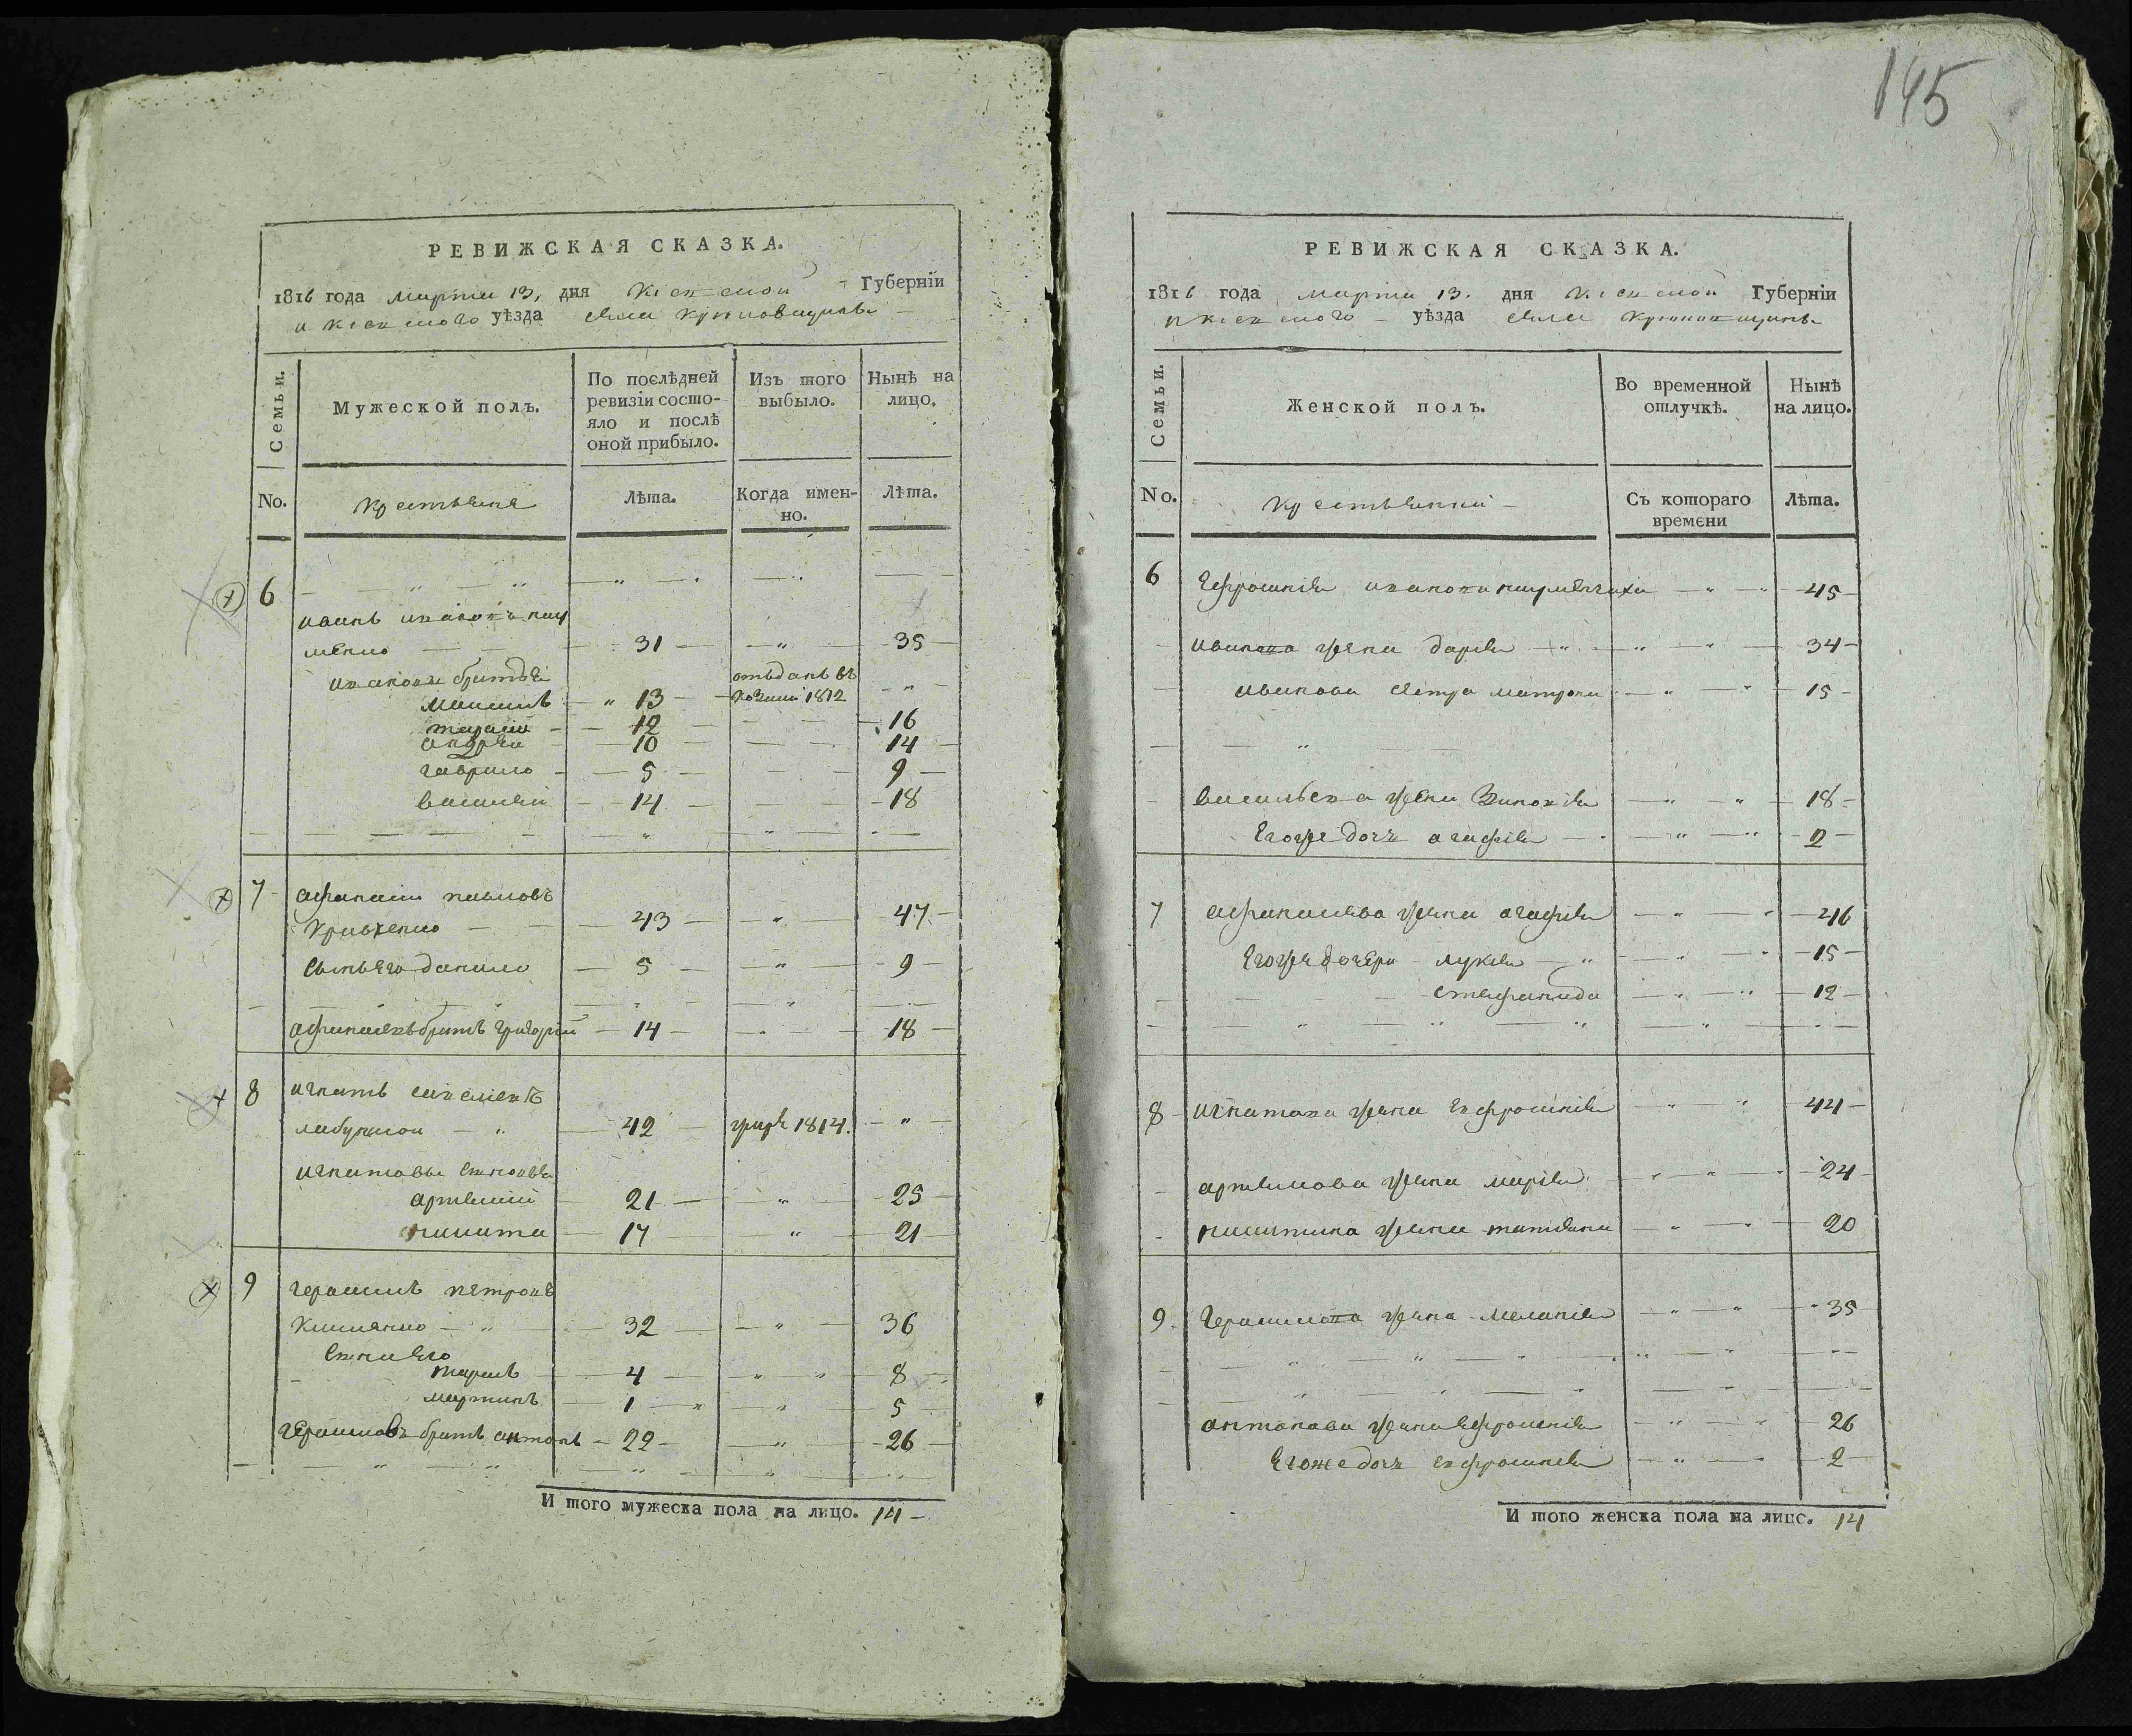 РЕВИЖСКАЯ СКАЗКА.
1816 года марта 13, дня Кіевской Губерніи
и Кіевского уѣзда села
Семьи.
Мужеской полъ.
По послѣдней ревизіи состояло и послѣ оной прибыло.
Изъ того выбыло.
Нынѣ на лицо.
No.
крестьяне
Лѣта.
Когда именно.
Лѣта.
6
иванъ
менко 31 35
братья отъданъ въ
13 1812
тарасій 12 16
андрей 10 14
гаврило 5 9
василій 14 18
7 афанасій павловъ
кравченко 43 47
сынъ его данило 5 9
братъ григорій 14 18
8 игнатъ
42 1814
игнатовы сыновья
артемій 21 25
никита 17 21
9 герасимъ петровъ
32 36
сыны его
тарасъ 4 8
мартинъ 1 5
герасимовъ братъ антонъ 22 26
И того мужеска пола на лицо. 14
145
РЕВИЖСКАЯ СКАЗКА.
1816 года марта 13. дня Кіевской Губерніи
и кіевского уѣзда села
Семьи.
Женской полъ.
Во временной отлучкѣ.
Нынѣ на лицо.
No.
крестьянки
Съ котораго времени
Лѣта.
6 45
иванова жена дарія 34
иванова сестра матрона 15
жена зиновія 18
егоже дочь агафія 2
7 афанасіева жена агафія 46
егоже дочери лукія 15
стефанида 12
8 игнатова жена евфросинія 44
артемова жена марія 24
никитина жена татіяна 20
9. герасимова жена меланія 35
антонова жена ефросинія 26
егоже дочь евфросинія 2
И того женска пола на лицо. 14